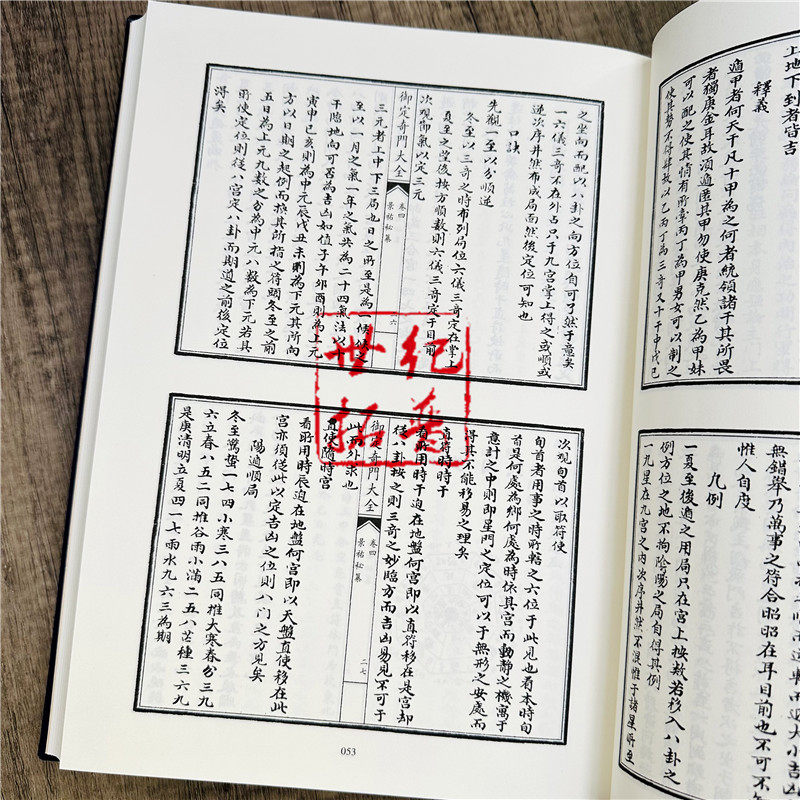 上地下到者皆吉
釋義
遁甲者何天干凡十甲為之何者統領諸干其所畏
者獨庚金耳故須遁匿其甲勿使庚克然乙為甲妹
可以配之使其情有所牽丙丁為甲男女可以制之
使其勢不得肆故以乙丙丁為三奇又十干中戊己
中迎大小吉凶
無錯舉乃萬事之符合昭昭在耳目前也不可不
惟人自度
凡例
一夏至後遁之用局只在宮上挨數若移入八卦之
例方位之地不拘陰陽之局自得其例
一九星在九宮之内次序井然不混惟于諸星所至
之坐向而配以八卦之向方位自可了然于意矣
一六儀三奇不在別占只于九宮掌上得之或順或
逆次序井然布成局面然後定位可知也
口訣
先觀二至以分順逆
冬至以三奇之時布列局位六儀三奇定在掌上
夏至之望後按方順數則六儀三奇定于目前
次觀節氣以定三元
御定奇門大全
卷四
景祐秘纂
六
三元者上中下三局也日之所至是為一候候之
至以一月之氣一年之氣共為二十四氣法以十
干臨地向可否為吉凶如值子午卯酉則為上元
寅申巳亥則為中元辰戌丑未則為下元其所向
方以日期之起例而模其所指之符頭冬至之前
五日為上元九數之分為中元八數為下元若其
所使定位則從八宮定八卦而期道之前後定位
得矣
次觀旬首以取符使
旬首者用事之時所轄之六位于此見也看本時旬
首是何處為鄉何處為時依其宮而動靜之機寓于
意計之中則即星門之定位可以于無形之安處而
得其不能移易之理矣
直符時時于
看所用時干迫在地盤何宮即以直符移在是宮却
從八卦挨之則三奇之妙臨方而吉凶易見不可于
御定奇門大全
卷四
景祐秘纂
二七
此另外求也
直使隨時宮
看所用時辰迫在地盤何宮即以天盤直使移在此
宮亦須從此以定吉凶之位則八门之方見矣
陽遁順局
冬至驚蟄一七四小寒三八五同推大寒春分三九
六立春八五二同推谷雨小滿二五八芒種三六九
是庚清明立夏四一七雨水九六三為期
053
世纪
拓普